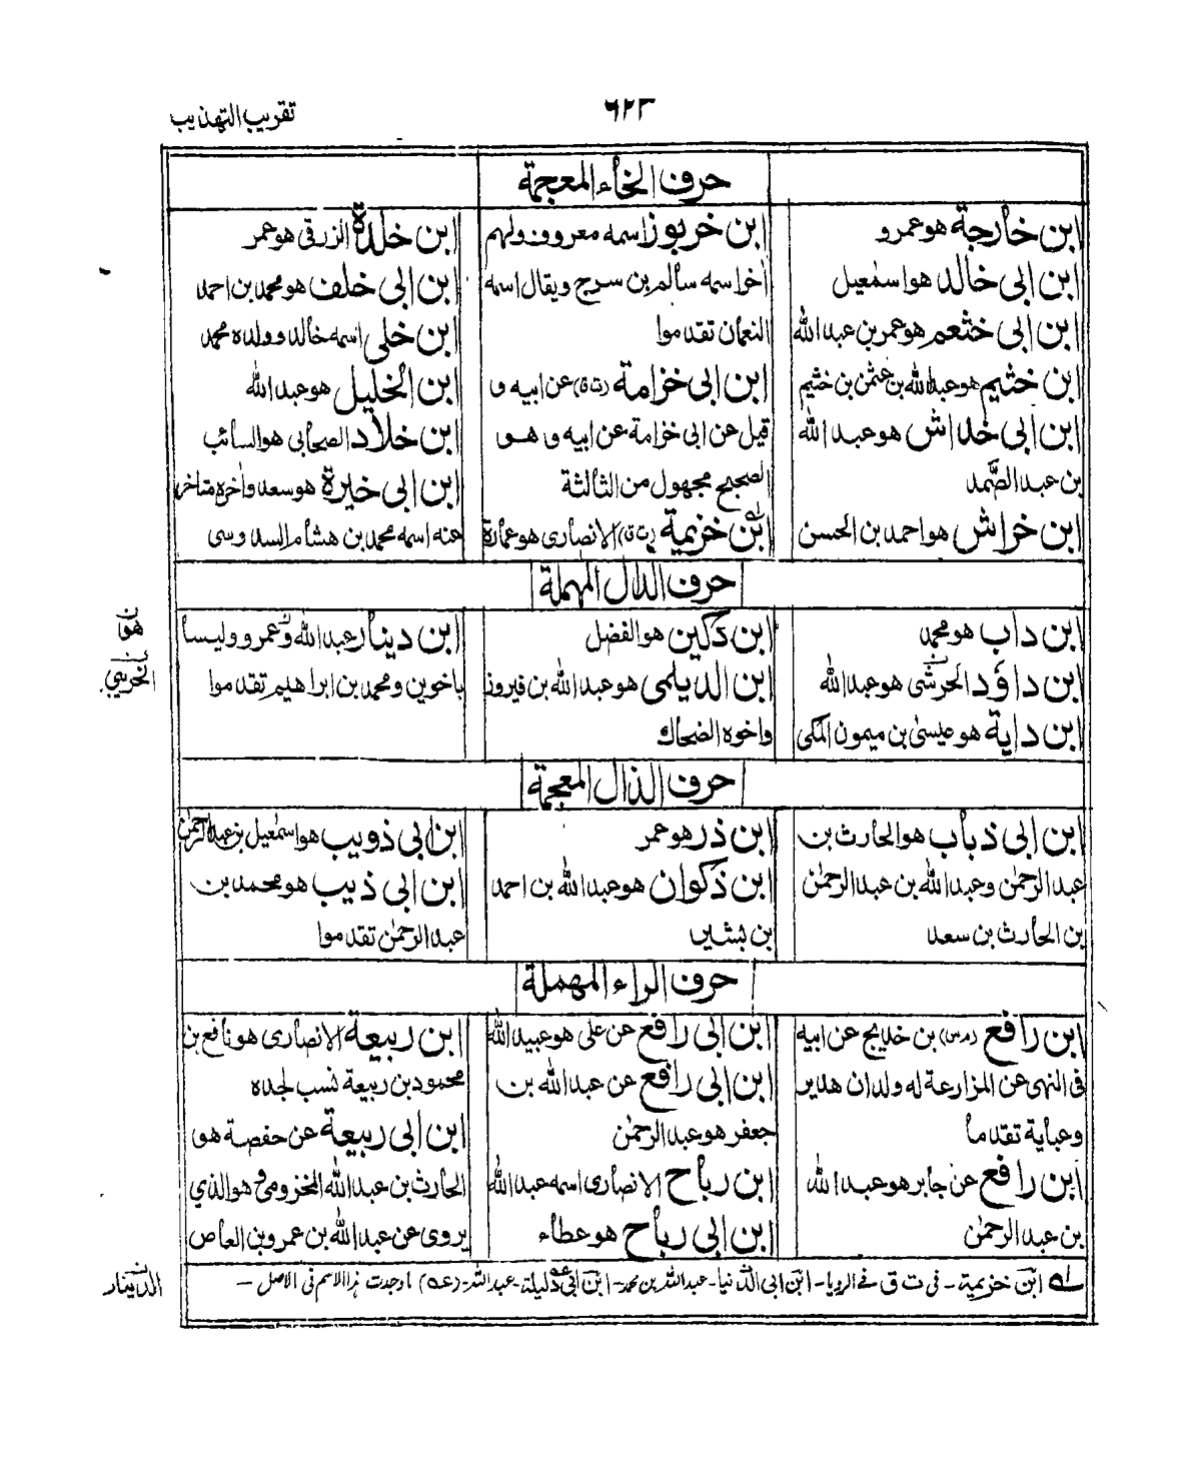 تقريب التهذيب
٦٢٣
حرف الخاء المعجمة
ابن خارجة هو عمرو
ابن ابى خالد هو اسمٰعيل
ابن ابى خثعم هو عمر بن عبد الله
ابن خثيم هو عبد الله بن عثمٰن بن خثيم
ابن ابى خداش هو عبد الله
بن عبد الصمد
ابن خراش هو احمد بن الحسن
ابن خربوز اسمه معروف ولهم
اخر اسمه سالم بن سرج ويقال اسمه
النعمان تقدموا
ابن ابى خزامة (ت ق) عن ابيه و
قيل عن ابى خزامة عن ابيه وهو
الصحيح مجهول من الثالثة
ابن خزيمة (ت ق) الانصارى هو عمارة
ابن خلدة الزرقى هو عمر
ابن ابى خلف هو محمد بن احمد
ابن خلى اسمه خالد وولده محمد
ابن الخليل هو عبد الله
ابن خلاد الصحابى هو السائب
ابن ابى خيرة هو سعد واخره متاخر
عنه اسمه محمد بن هشام السدوسى
حرف الدال المهملة
ابن داب هو محمد
ابن داؤد الخرشى هو عبد الله
ابن داية هو عيسىٰ بن ميمون المكى
ابن دكين هو الفضل
ابن الديلمى هو عبد الله بن فيروز
واخوه الضحاك
ابن دينار عبد الله وعمرو وليسا
باخوين ومحمد بن ابراهيم تقدموا
هو
الخريبي
حرف الذال المعجمة
ابن ابى ذباب هو الحارث بن
عبد الرحمٰن وعبد الله بن عبد الرحمٰن
بن الحارث بن سعد
ابن ذر هو عمر
ابن ذكوان هو عبد الله بن احمد
بن بشير
ابن ابى ذويب هو اسمٰعيل بن عبد الرحمٰن
ابن ابى ذيب هو محمد بن
عبد الرحمٰن تقدموا
حرف الراء المهملة
ابن رافع (م س) بن خديج عن ابيه
فى النهى عن المزارعة له ولدان هدير
وعباية تقدما
ابن رافع عن جابر هو عبد الله
بن عبد الرحمٰن
ابن ابى رافع عن على هو عبيد الله
ابن ابى رافع عن عبد الله بن
جعفر هو عبد الرحمٰن
ابن رباح الانصارى اسمه عبد الله
ابن ابى رباح هو عطاء
ابن ربيعة الانصارى هو نافع بن
محمود بن ربيعة نسب لجده
ابن ابى ربيعة عن حفصة هو
الحارث بن عبد الله المخزومى وهو الذي
يروى عن عبد الله بن عمرو بن العاص
ابن خزيمة - فى ت ق فے الرويا - ابن ابى الدنيا - عبد الله بن محمد - ابن ابى دليلة - عبد الله - (عه) ما وجدت هذا الاسم فى الاصل -